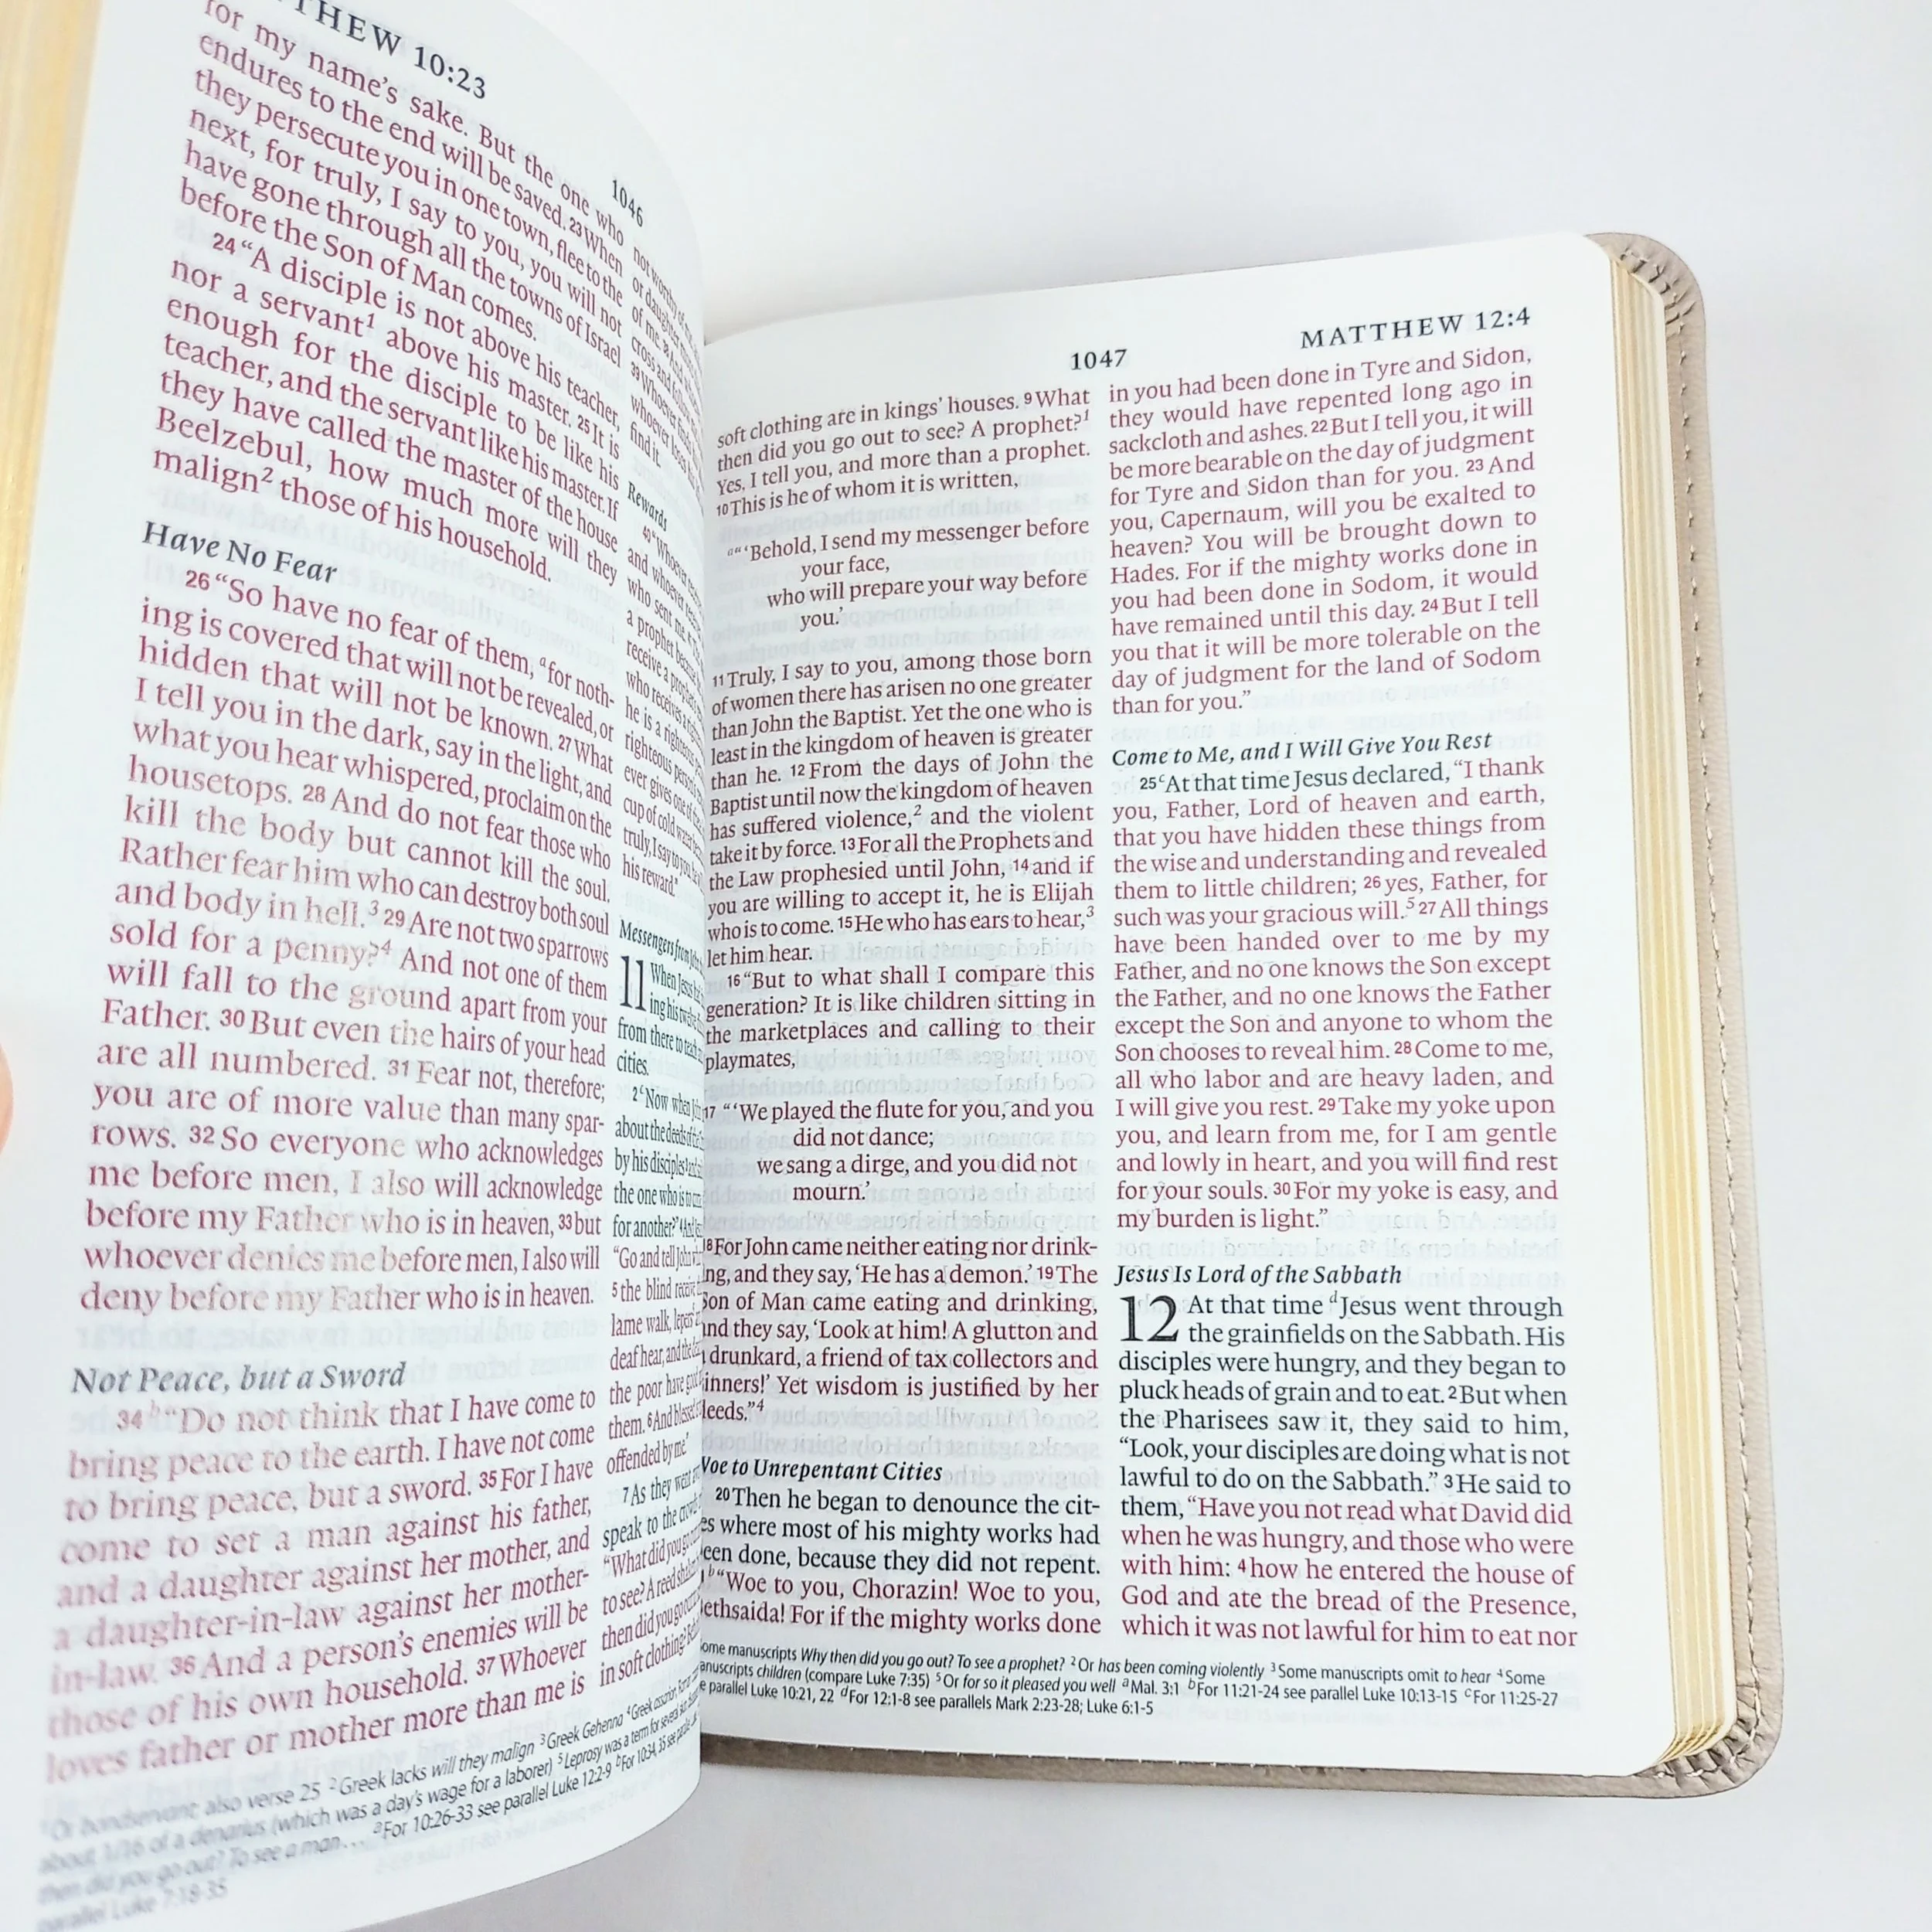 THEW 10:23
1046
for my name's sake. But the one who
endures to the end will be saved. 23 When
they persecute you in one town, flee to the
next, for truly, I say to you, you will not
have gone through all the towns of Israel
before the Son of Man comes.
24 “A disciple is not above his teacher,
nor a servant1 above his master. 25 It is
enough for the disciple to be like his
teacher, and the servant like his master. If
they have called the master of the house
Beelzebul, how much more will they
malign2 those of his household.
Have No Fear
26 “So have no fear of them, a for noth-
ing is covered that will not be revealed, or
hidden that will not be known. 27 What
I tell you in the dark, say in the light, and
what you hear whispered, proclaim on the
housetops. 28 And do not fear those who
kill the body but cannot kill the soul.
Rather fear him who can destroy both soul
and body in hell.3 29 Are not two sparrows
sold for a penny?4 And not one of them
will fall to the ground apart from your
Father. 30 But even the hairs of your head
are all numbered. 31 Fear not, therefore;
you are of more value than many spar-
rows. 32 So everyone who acknowledges
me before men, I also will acknowledge
before my Father who is in heaven, 33 but
whoever denies me before men, I also will
deny before my Father who is in heaven.
Not Peace, but a Sword
34 b “Do not think that I have come to
bring peace to the earth. I have not come
to bring peace, but a sword. 35 For I have
come to set a man against his father,
and a daughter against her mother, and
a daughter-in-law against her mother-
in-law. 36 And a person's enemies will be
those of his own household. 37 Whoever
loves father or mother more than me is
not worthy of
or daughter
of me. 38 And
cross and follow
39 Whoever finds
whoever loses
find it.
Rewards
40 “Whoever
and whoever
who sent me.
a prophet because
receive a prophet's
who receives a
he is a righteous
righteous person's
ever gives one of
cup of cold water
truly, I say to you,
his reward.”
Messengers from John
11 When Jesus
ing his twelve
from there to teach
cities.
2 c Now when John
about the deeds of the
by his disciples
the one who is to come
for another?” 4 And
“Go and tell John
5 the blind receive
lame walk, lepers
deaf hear, and the
the poor have good
them. 6 And blessed
offended by me.”
7 As they went
speak to the crowds
“What did you go out
to see? A reed shaken
then did you go out
in soft clothing?
1 Or bondservant; also verse 25 2 Greek lacks will they malign 3 Greek Gehenna 4 Greek assarion,
about 1/16 of a denarius (which was a day's wage for a laborer) 5 Leprosy was a term for several
then did you go out? To see a man... a For 10:26-33 see parallel Luke 12:2-9 b For 10:34, 35 see
parallel Luke 7:18-35
1047
MATTHEW 12:4
soft clothing are in kings' houses. 9 What
then did you go out to see? A prophet?1
Yes, I tell you, and more than a prophet.
10 This is he of whom it is written,
a “‘Behold, I send my messenger before
your face,
who will prepare your way before
you.’
11 Truly, I say to you, among those born
of women there has arisen no one greater
than John the Baptist. Yet the one who is
least in the kingdom of heaven is greater
than he. 12 From the days of John the
Baptist until now the kingdom of heaven
has suffered violence,2 and the violent
take it by force. 13 For all the Prophets and
the Law prophesied until John, 14 and if
you are willing to accept it, he is Elijah
who is to come. 15 He who has ears to hear,3
let him hear.
16 “But to what shall I compare this
generation? It is like children sitting in
the marketplaces and calling to their
playmates,
17 “‘We played the flute for you, and you
did not dance;
we sang a dirge, and you did not
mourn.’
18 For John came neither eating nor drink-
ing, and they say, ‘He has a demon.’ 19 The
Son of Man came eating and drinking,
and they say, ‘Look at him! A glutton and
drunkard, a friend of tax collectors and
sinners!’ Yet wisdom is justified by her
deeds.”4
Woe to Unrepentant Cities
20 Then he began to denounce the cit-
es where most of his mighty works had
een done, because they did not repent.
b “Woe to you, Chorazin! Woe to you,
ethsaida! For if the mighty works done
in you had been done in Tyre and Sidon,
they would have repented long ago in
sackcloth and ashes. 22 But I tell you, it will
be more bearable on the day of judgment
for Tyre and Sidon than for you. 23 And
you, Capernaum, will you be exalted to
heaven? You will be brought down to
Hades. For if the mighty works done in
you had been done in Sodom, it would
have remained until this day. 24 But I tell
you that it will be more tolerable on the
day of judgment for the land of Sodom
than for you.”
Come to Me, and I Will Give You Rest
25 c At that time Jesus declared, “I thank
you, Father, Lord of heaven and earth,
that you have hidden these things from
the wise and understanding and revealed
them to little children; 26 yes, Father, for
such was your gracious will.5 27 All things
have been handed over to me by my
Father, and no one knows the Son except
the Father, and no one knows the Father
except the Son and anyone to whom the
Son chooses to reveal him. 28 Come to me,
all who labor and are heavy laden, and
I will give you rest. 29 Take my yoke upon
you, and learn from me, for I am gentle
and lowly in heart, and you will find rest
for your souls. 30 For my yoke is easy, and
my burden is light.”
Jesus Is Lord of the Sabbath
12 At that time d Jesus went through
the grainfields on the Sabbath. His
disciples were hungry, and they began to
pluck heads of grain and to eat. 2 But when
the Pharisees saw it, they said to him,
“Look, your disciples are doing what is not
lawful to do on the Sabbath.” 3 He said to
them, “Have you not read what David did
when he was hungry, and those who were
with him: 4 how he entered the house of
God and ate the bread of the Presence,
which it was not lawful for him to eat nor
ome manuscripts Why then did you go out? To see a prophet? 2 Or has been coming violently 3 Some manuscripts omit to hear 4 Some
anuscripts children (compare Luke 7:35) 5 Or for so it pleased you well a Mal. 3:1 b For 11:21-24 see parallel Luke 10:13-15 c For 11:25-27
e parallel Luke 10:21, 22 d For 12:1-8 see parallels Mark 2:23-28; Luke 6:1-5